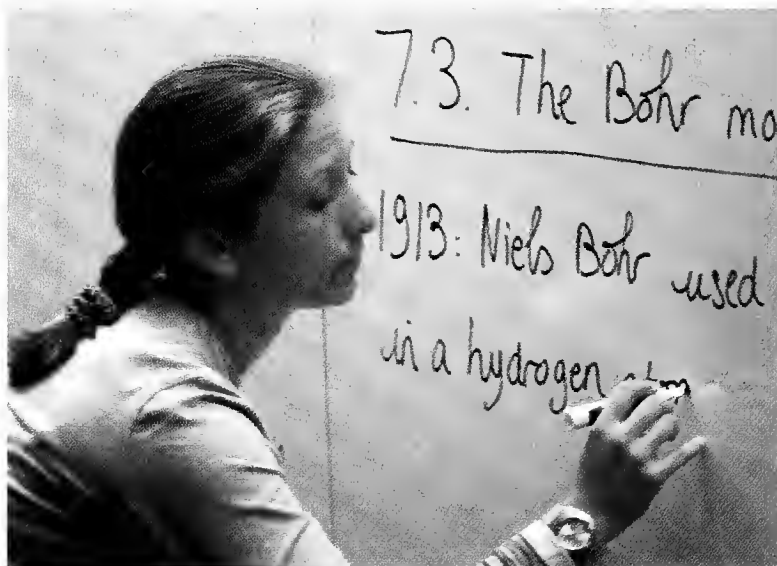 7.3. The Bohr mo
1913: Niels Bohr used
in a hydrogen atom